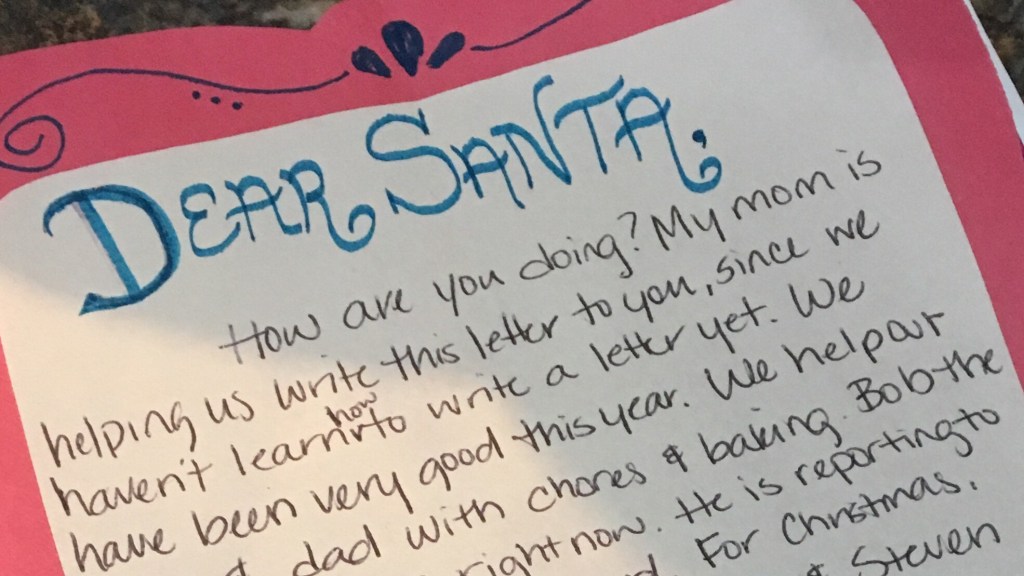 DEAR SANTA,
How are you doing? My mom is
helping us write this letter to you, since we
haven't learn how to write a letter yet. We
have been very good this year. We help our
& dad with chores & baking. Bob the
right now. He is reporting to
For Christmas.
& Steven